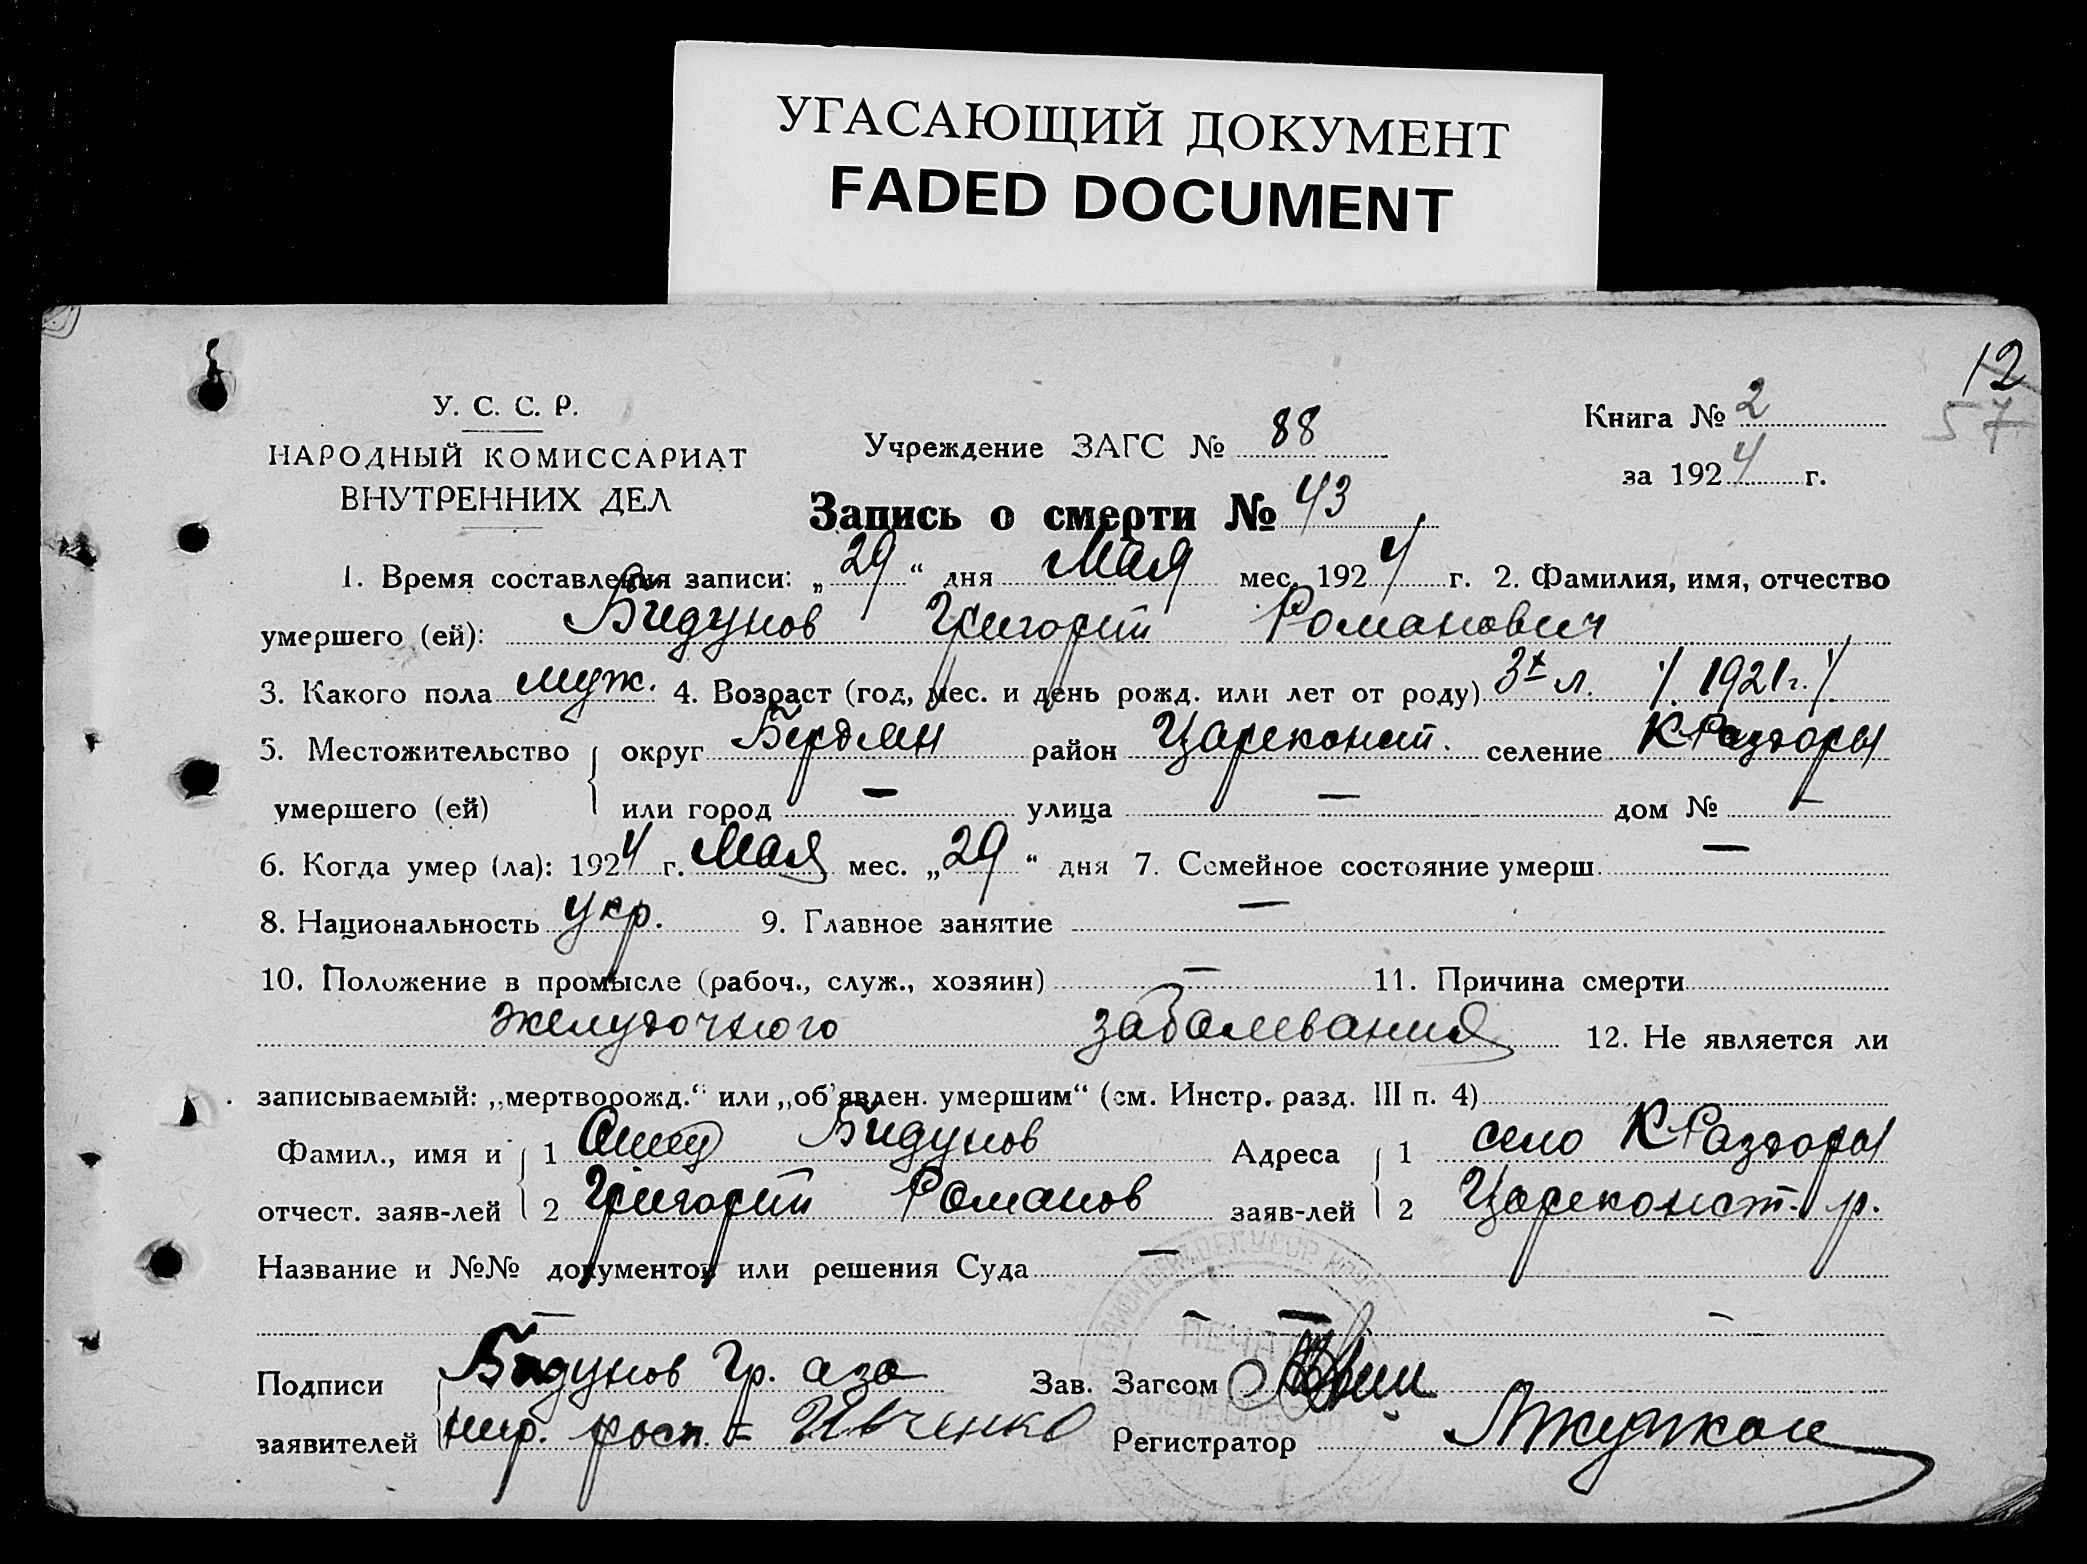 УГАСАЮЩИЙ ДОКУМЕНТ
FADED DOCUMENT
12
57
У. С. С. Р.
НАРОДНЫЙ КОМИССАРИАТ
ВНУТРЕННИХ ДЕЛ
Учреждение ЗАГС № 88
Книга № 2
за 1924 г.
Запись о смерти № 43
1. Время составления записи: „29“ дня Мая мес. 1924 г. 2. Фамилия, имя, отчество
умершего (ей): Бидунов Григорий Романович
3. Какого пола муж. 4. Возраст (год, мес. и день рожд. или лет от роду) 3х л. /1921 г./
5. Местожительство округ Бердян район Цареконст. селение К Раздоры
умершего (ей) или город — улица — дом № —
6. Когда умер (ла): 1924 г. Мая мес. „29“ дня 7. Семейное состояние умерш. —
8. Национальность укр. 9. Главное занятие —
10. Положение в промысле (рабоч., служ., хозяин) — 11. Причина смерти
желудочного заболевания 12. Не является ли
записываемый: „мертворожд.“ или „об'явлен. умершим“ (см. Инстр. разд. III п. 4)
Фамил., имя и 1 Отец Бидунов Адреса 1 село К Раздоры
отчест. заяв-лей 2 Григорий Романов заяв-лей 2 Цареконст. р.
Название и №№ документов или решения Суда —
— — — —
Подписи Бидунов Гр. а за Зав. Загсом
заявителей негр. росп. = Ивченко Регистратор
ПЕЧАТЬ